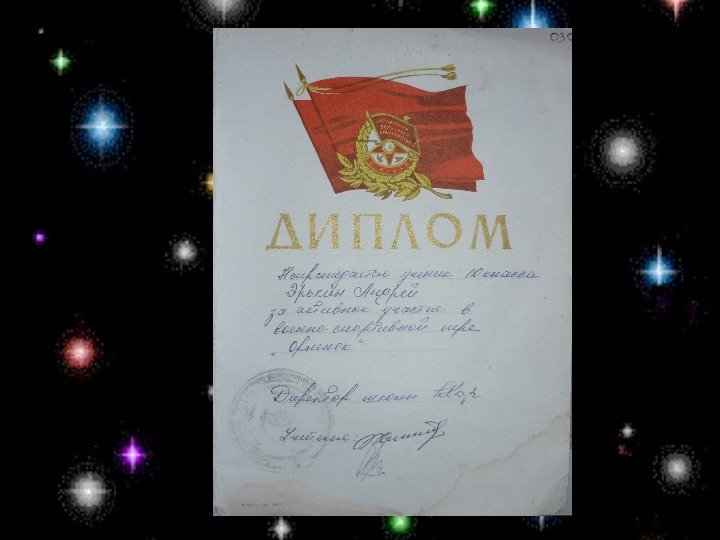 ДИПЛОМ
Награждается ученик 10 класса
Эрькин Андрей
за активное участие в
военно-спортивной игре
„Орленок“
Директор школы
Учителя